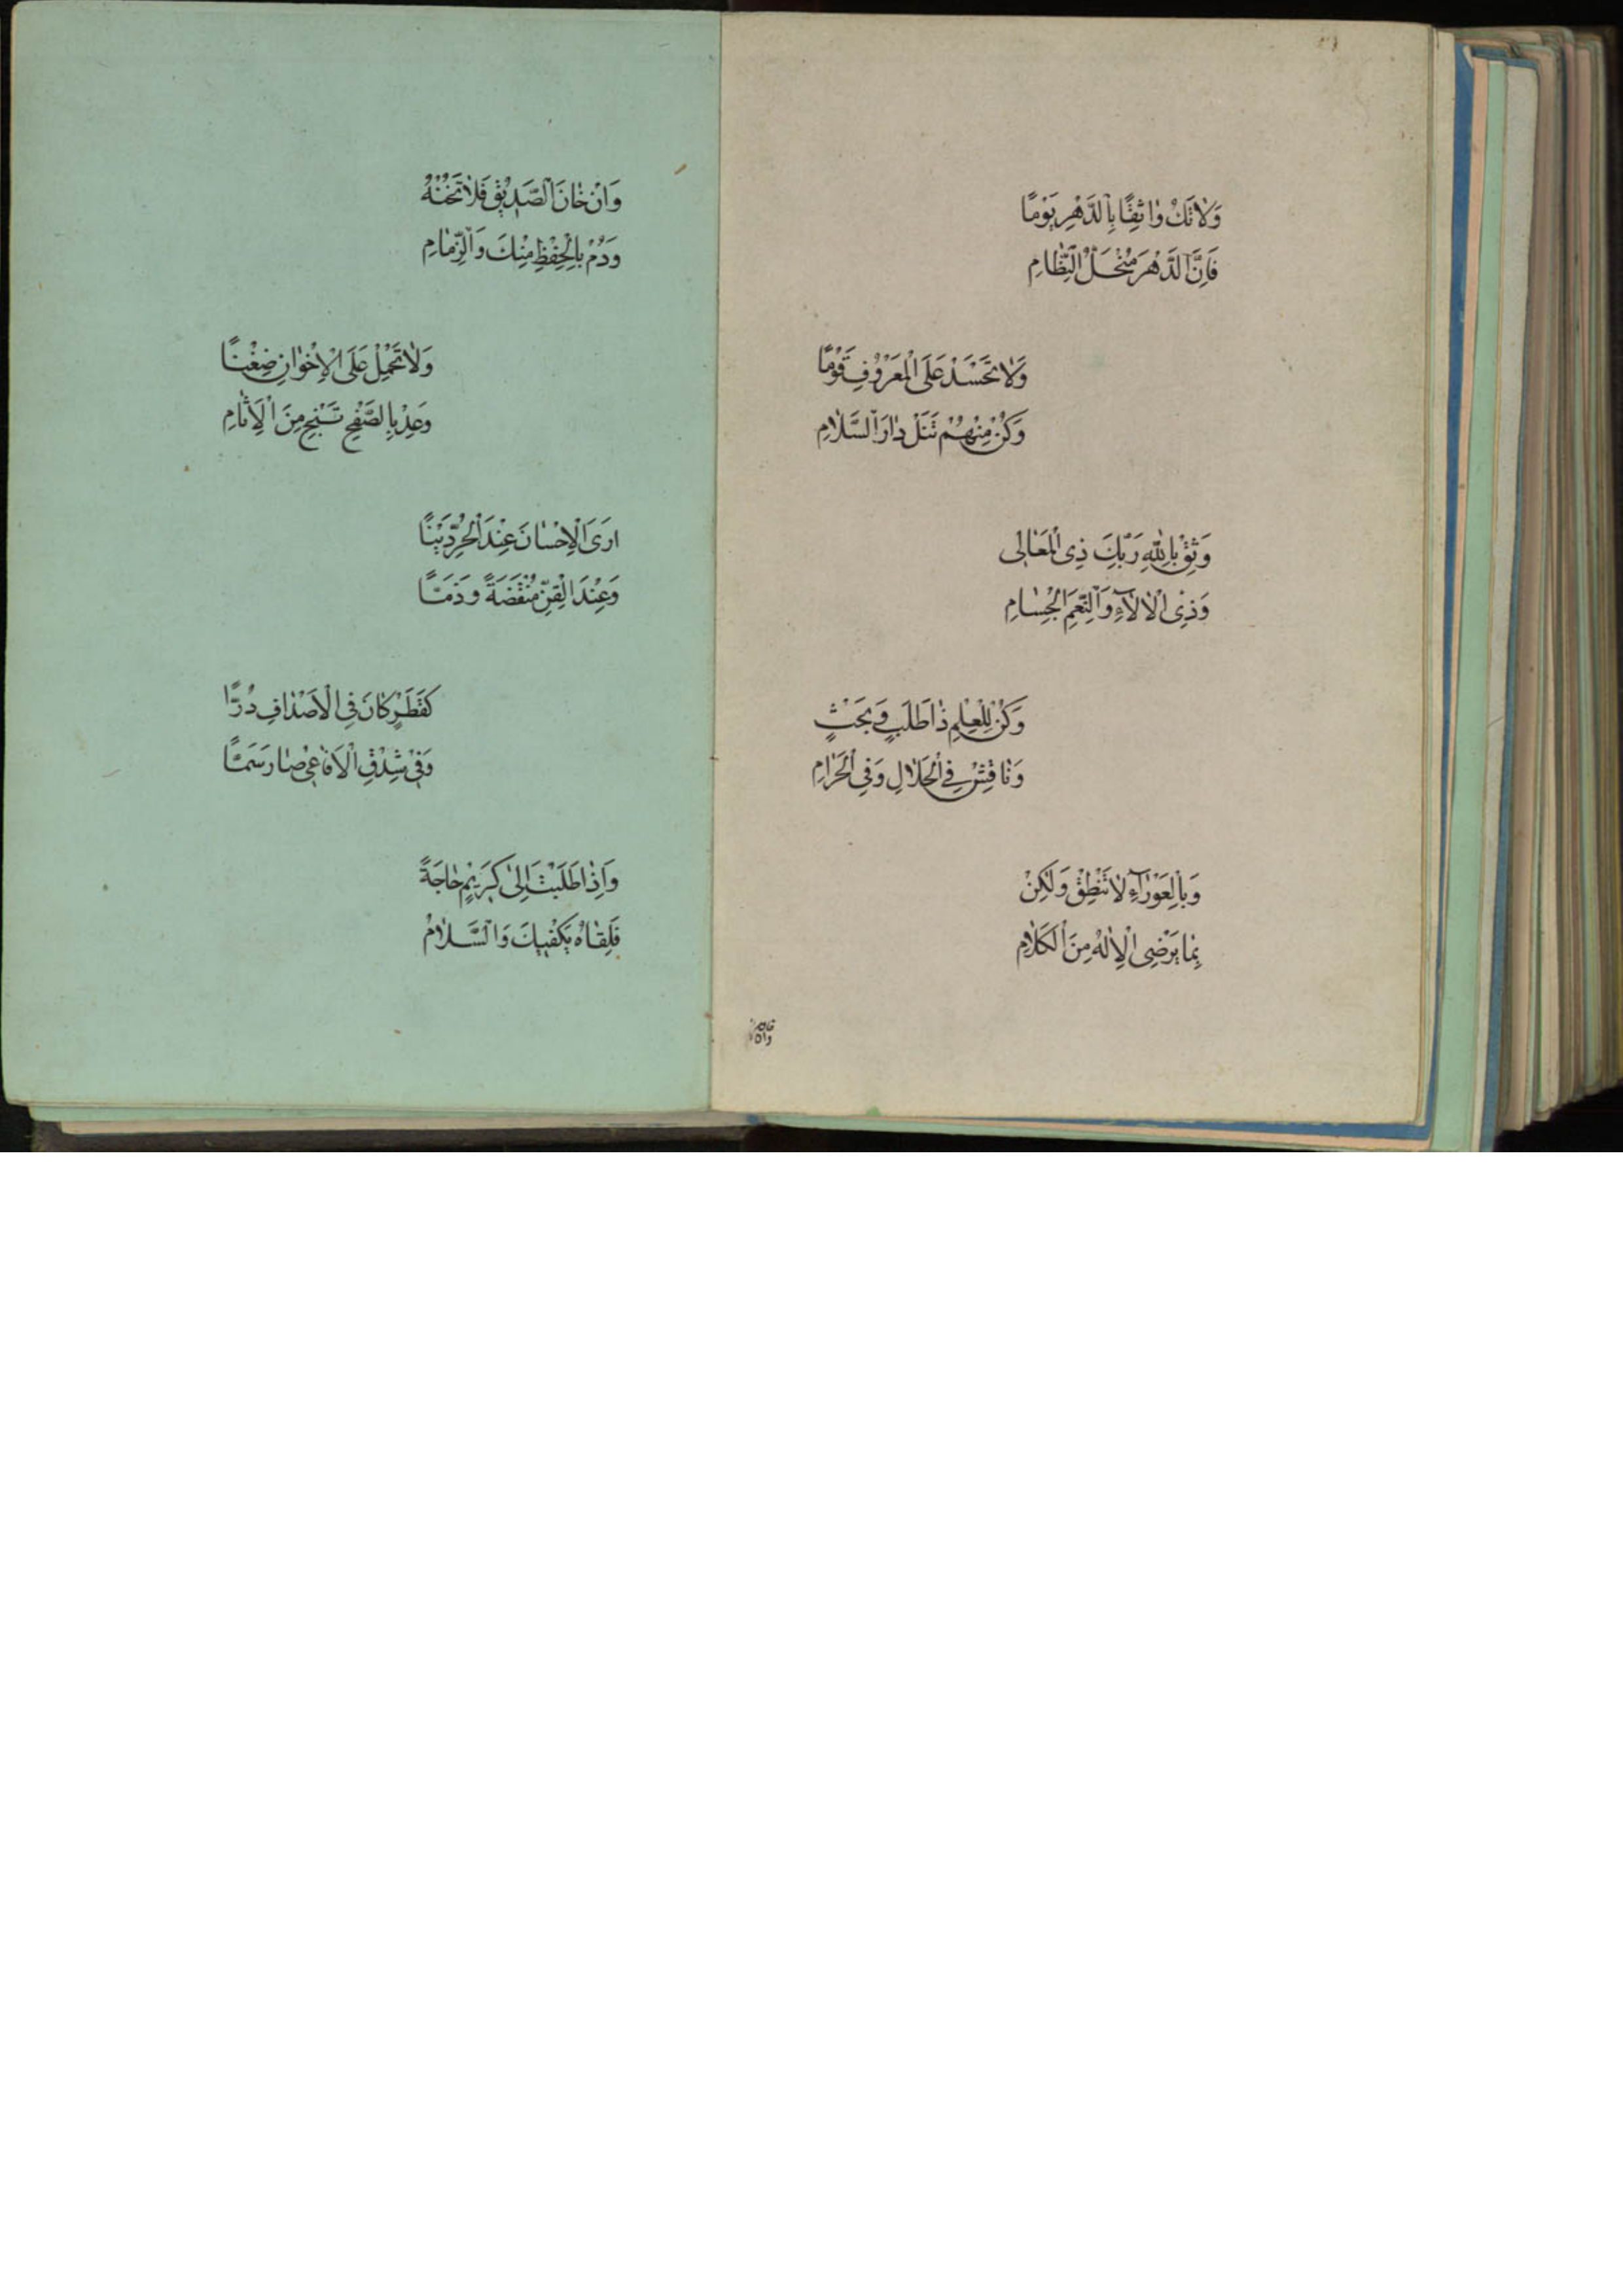 وَلَاتَكُ وٰاثِقًا بِالدَّهْرِ يَوْمًا
فَاِنَّ الدَّهْرَ مُنْحَلُّ النِّظٰامِ
وَلَاتَحْسَدْ عَلَى الْمَعْرُوْفِ قَوْمًا
وَكُنْ مِنْهُمْ تَنَلْ دٰارَ السَّلَامِ
وَثِقْ بِاللهِ رَبِّكَ ذِى الْمَعٰالِى
وَذِى الْاٰلَآءِ وَالنِّعَمِ الْجِسٰامِ
وَكُنْ لِلْعِلْمِ ذٰا طَلَبٍ وَبَحْثٍ
وَنٰاقِشْ فِى الْحَلَالِ وَفِى الْحَرٰامِ
وَبِالْعَوْرٰآءِ لَاتَنْطِقْ وَلٰكِنْ
بِمٰا يَرْضِى الْاِلٰهُ مِنَ الْكَلَامِ
وَاِنْ خٰانَ الصَّدِيْقُ فَلَاتَخُنْهُ
وَدُمْ بِالْحِفْظِ مِنْكَ وَالذِّمٰامِ
وَلَاتَحْمِلْ عَلَى الْاِخْوٰانِ ضِغْنًا
وَعِدْ بِالصَّفْحِ تَنْجِ مِنَ الْاَثٰامِ
ارَى الْاِحْسٰانَ عِنْدَ الْحُرِّ دَيْنًا
وَعِنْدَ الْقِنِّ مُنْقَضَةً وَذَمًّا
كَقَطْرٍ كٰانَ فِى الْاَصْدٰافِ دُرًّا
وَفِىْ شِدْقِ الْاَفٰاعِىْ صٰارَ سَمًّا
وَاِذٰا طَلَبْتَ اِلىٰ كَرِيْمٍ حٰاجَةً
فَلِقٰاهُ يَكْفِيْكَ وَالسَّلَامُ